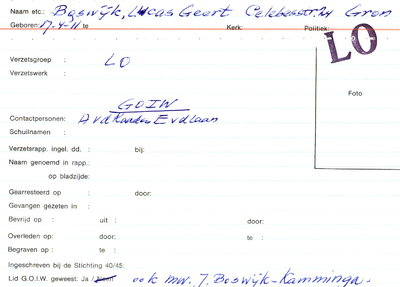 Naam etc.: Boswijk, Lucas Geert Celebesstr. 74 Gron
Geboren: 17-4-11 te Kerk: Politiek:
LO
Verzetsgroep : LO
Verzetswerk :
Foto
GOIW
Contactpersonen: A vd Kaaden E vd Laan
Schuilnaam :
Verzetsrapp. ingel. dd. : bij:
Naam genoemd in rapp.:
op bladzijde:
Gearresteerd op : door:
Gevangen gezeten in :
Bevrijd op : uit : door:
Overleden op: door: te :
Begraven op : te :
Ingeschreven bij de Stichting 40/45:
Lid G.O.I.W. geweest: Ja / Neen ook mw. J. Boswijk-Kamminga.